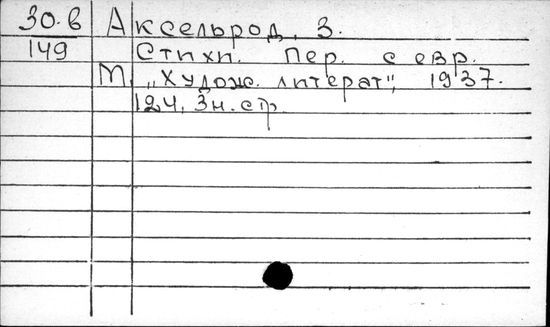 30.в Аксельрод, З.
149 Стихи. Пер. с евр.
М. „Худож. литерат", 1937.
124, 3н. стр.